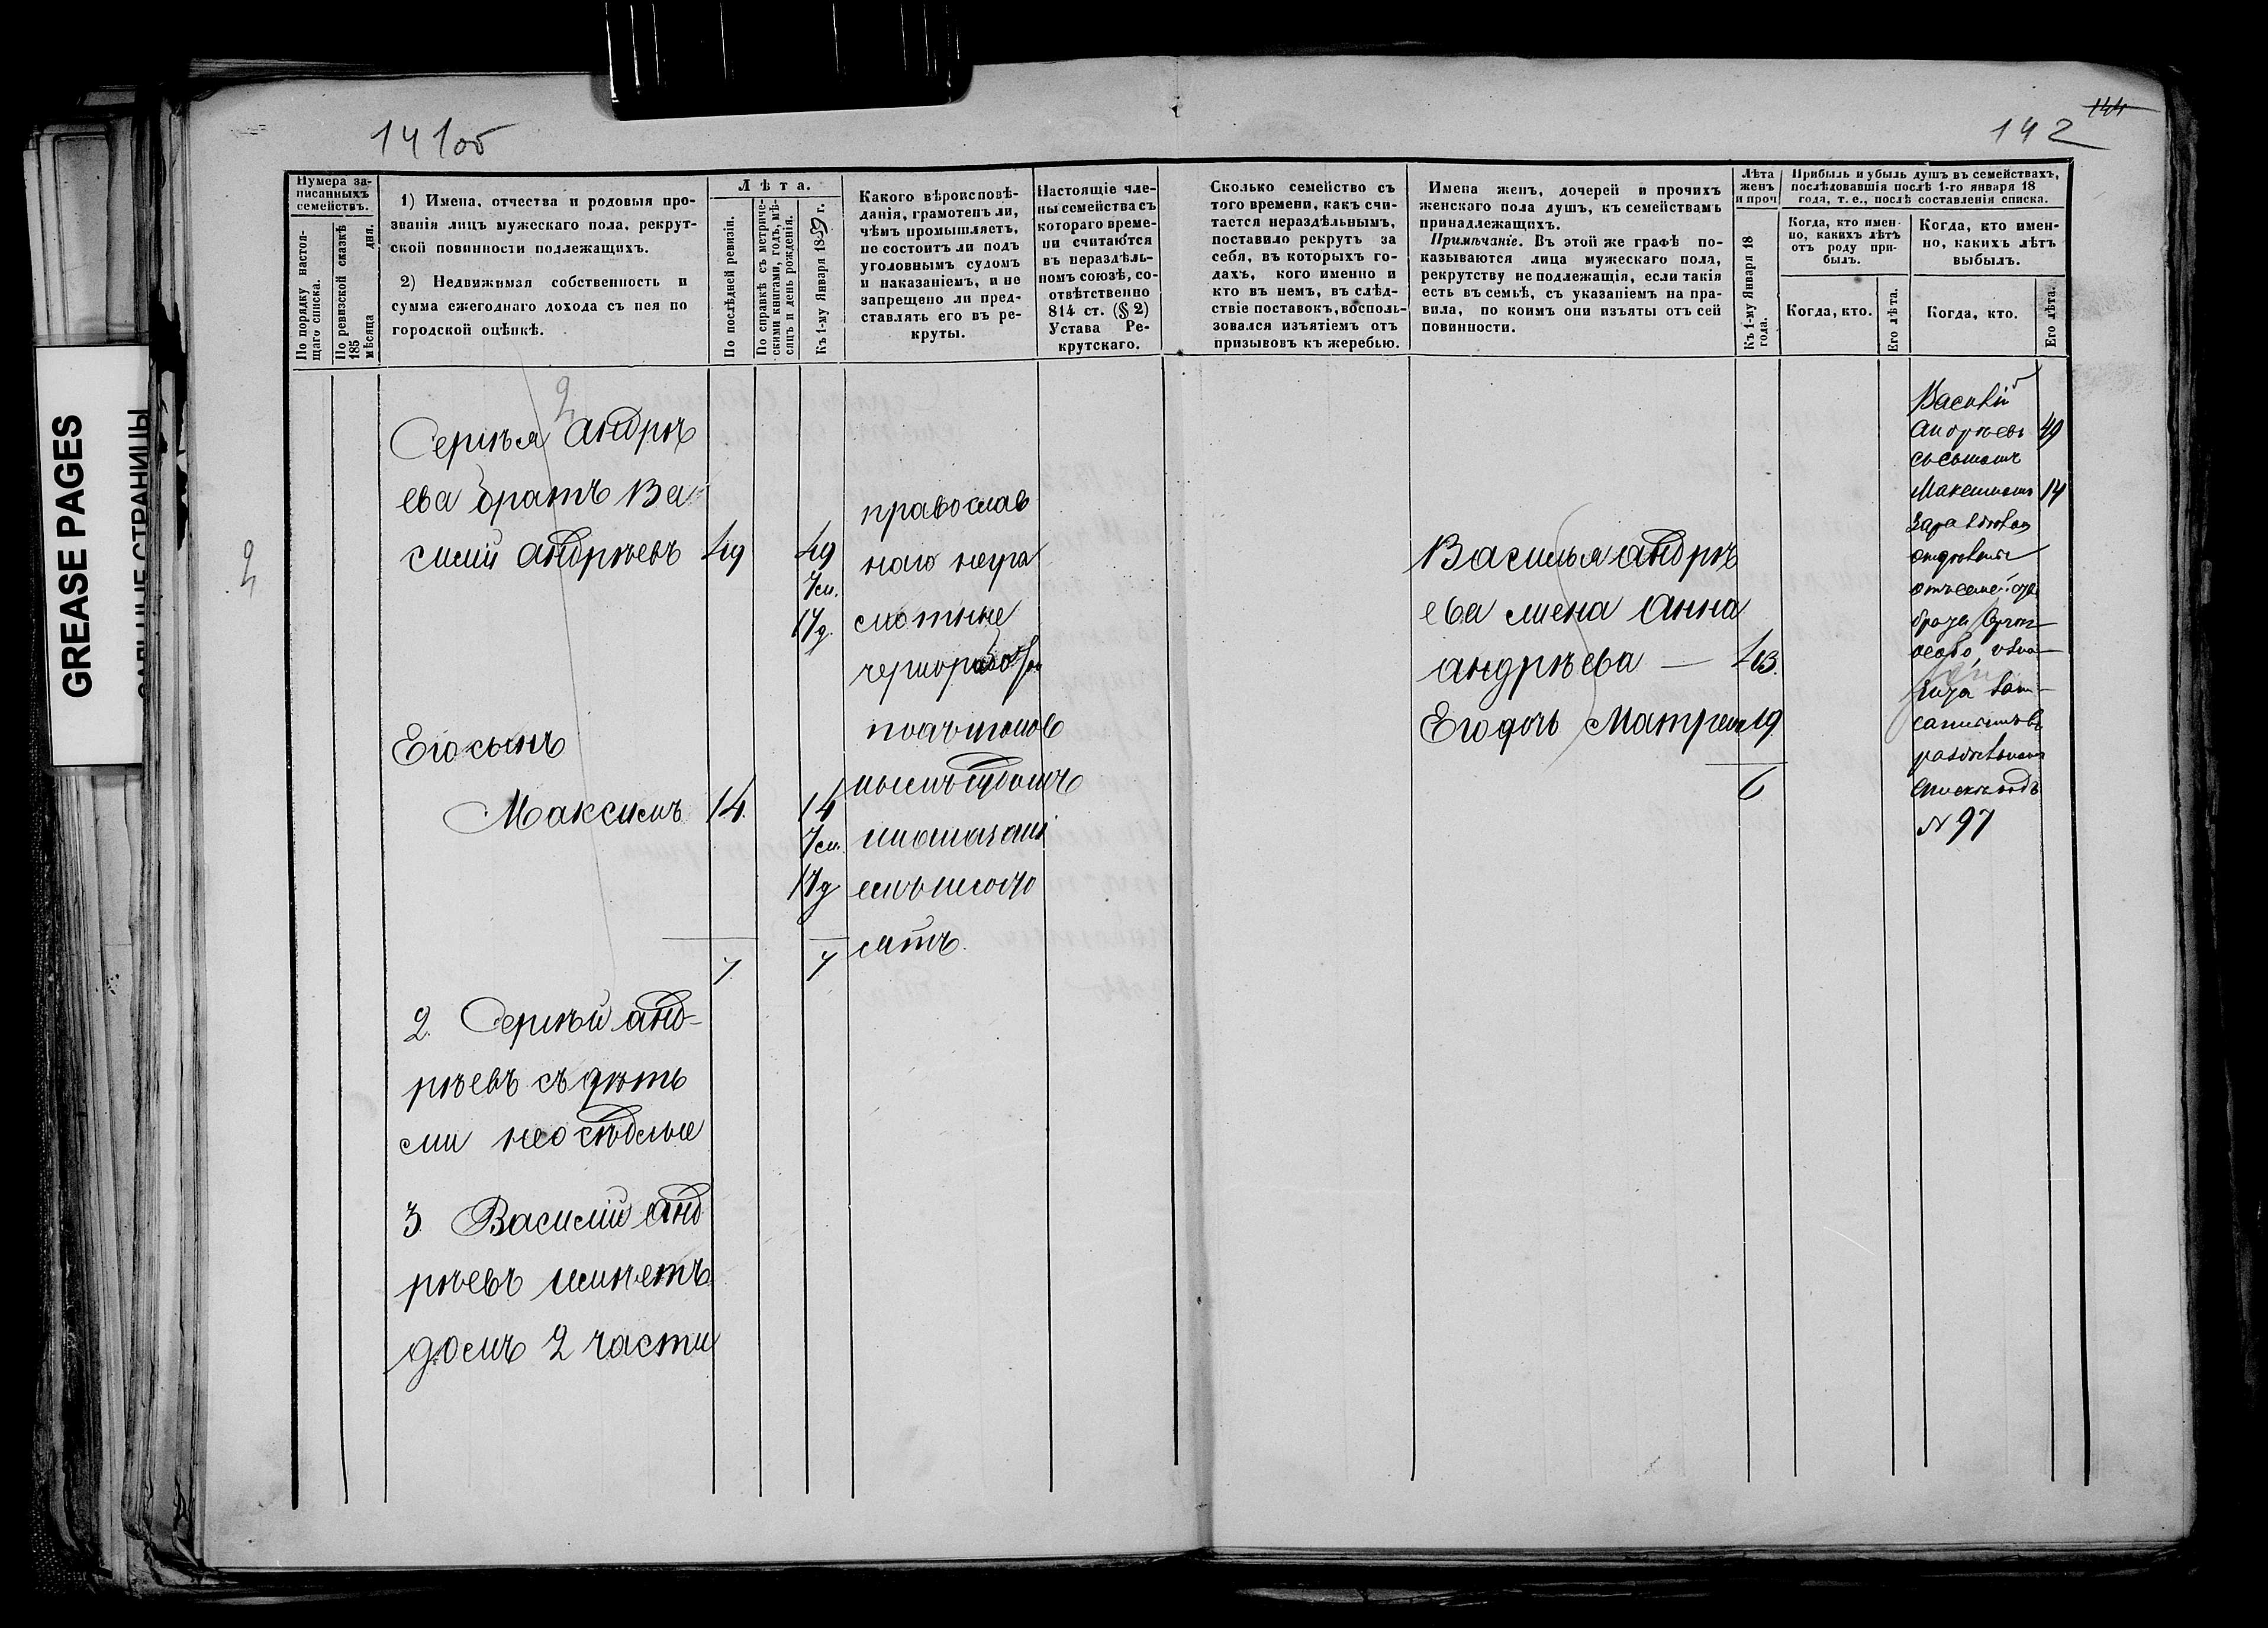 141об
142
144
GREASE PAGES
САЛЬНЫЕ СТРАНИЦЫ
Нумера за-
писанныхъ
семействъ.
По порядку настоя-
щаго списка.
По ревизской сказкѣ
185 дня.
мѣсяца
1) Имена, отчества и родовыя про-
званія лицъ мужескаго пола, рекрут-
ской повинности подлежащихъ.
2) Недвижимая собственность и
сумма ежегоднаго дохода съ нея по
городской оцѣнкѣ.
Лѣта.
По послѣдней ревизіи.
По справкѣ съ метриче-
скими книгами, годъ, мѣ-
сяцъ и день рожденія.
Къ 1-му Января 1859 г.
Какого вѣроисповѣ-
данія, грамотенъ ли,
чѣмъ промышляетъ,
не состоитъ ли подъ
уголовнымъ судомъ
и наказаніемъ, и не
запрещено ли пред-
ставлять его въ ре-
круты.
Настоящіе чле-
ны семейства съ
котораго време-
ни считаются
въ нераздѣль-
номъ союзѣ, со-
отвѣтственно
814 ст. (§ 2)
Устава Ре-
крутскаго.
Сколько семейство съ
того времени, какъ счи-
тается нераздѣльнымъ,
поставило рекрутъ за
себя, въ которыхъ го-
дахъ, кого именно и
кто въ немъ, въ слѣд-
ствіе поставокъ, восполь-
зовался изъятіемъ отъ
призывовъ къ жеребью.
Имена женъ, дочерей и прочихъ
женскаго пола душъ, къ семействамъ
принадлежащихъ.
Примѣчаніе. Въ этой же графѣ по-
казываются лица мужескаго пола,
рекрутству не подлежащія, если такія
есть въ семьѣ, съ указаніемъ на пра-
вила, по коимъ они изъяты отъ сей
повинности.
Лѣта
женъ
и проч
Къ 1-му Января 18
года.
Прибыль и убыль душъ въ семействахъ,
послѣдовавшія послѣ 1-го января 18
года, т. е., послѣ составленія списка.
Когда, кто имен-
но, какихъ лѣтъ
отъ роду при-
былъ.
Когда, кто.
Его лѣта.
Когда, кто имен-
но, какихъ лѣтъ
выбылъ.
Когда, кто.
Его лѣта.
2
2
Сергѣя Андрѣ
ева братъ Ва
силій Андрѣевъ 49 49
7м.
17д.
Его сынъ
Максимъ 14. 14
7м.
17д
7 7
2. Сергѣй Анд-
рѣевъ съ дѣть
ми неотдѣльне
3 Василій Анд
рѣевъ имѣетъ
домъ 2 части
православ
наго негра
мотные
чернорабо
подъ уголов
нымъ судомъ
и наказані
емъ несосто
ятъ.
Василья Андрѣ
ева жена Анна
Андрѣева — 43.
Его дочь Матрена 19
6
Василій
Андрѣевъ 49
съ сыномъ
Максимомъ 14
отъ семейства
брата Сергѣя
особо
№ 97